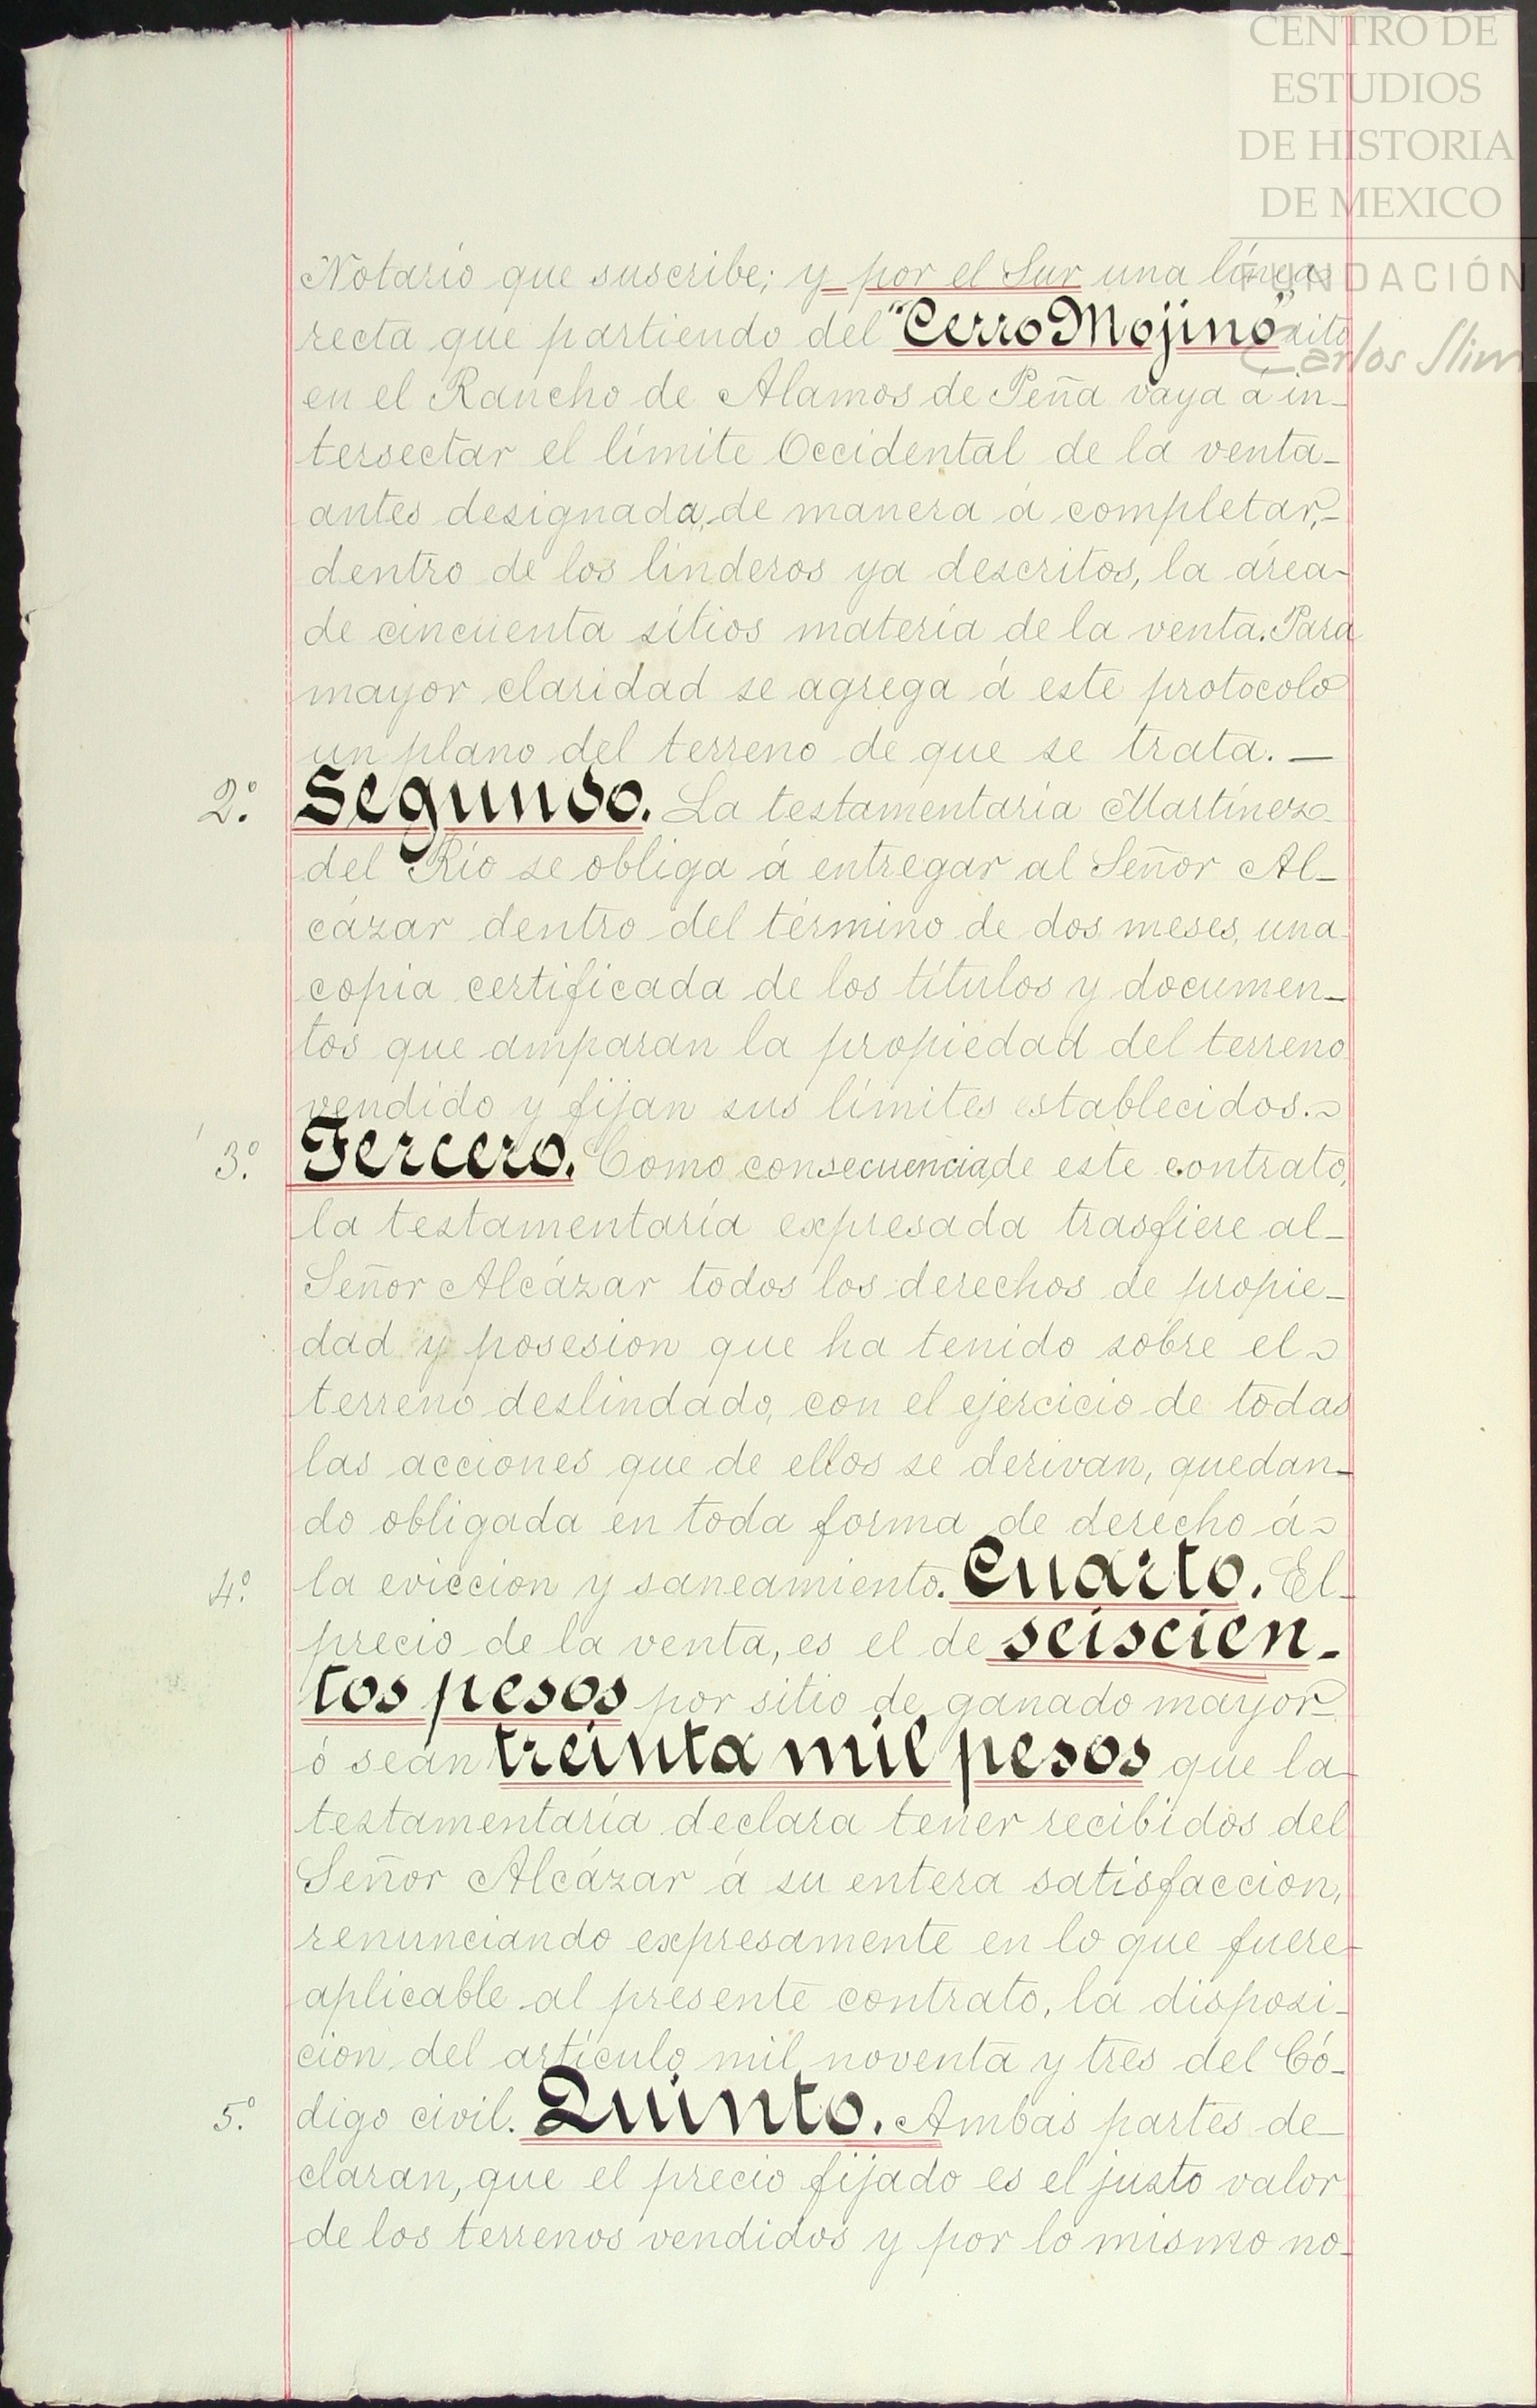 CENTRO DE
ESTUDIOS
DE HISTORIA
DE MEXICO
FUNDACIÓN
Carlos Slim
Notario que suscribe; y por el Sur una línea
recta que partiendo del "Cerro Mojino" sito
en el Rancho de Alamos de Peña vaya á in-
tersectar el límite Occidental de la venta-
antes designada, de manera á completar,-
dentro de los linderos ya descritos, la área-
de cincuenta sitios materia de la venta. Para
mayor claridad se agrega á este protocolo
un plano del terreno de que se trata. —
2.º Segundo. La testamentaría Martínez-
del Río se obliga á entregar al Señor Al-
cázar dentro del término de dos meses, una
copia certificada de los títulos y documen-
tos que amparan la propiedad del terreno
vendido y fijan sus límites establecidos.~
3.º Tercero. Como consecuencia, de este contrato,
la testamentaría expresada trasfiere al-
Señor Alcázar todos los derechos de propie-
dad y posesion que ha tenido sobre el~
terreno deslindado, con el ejercicio de todas
las acciones que de ellos se derivan, quedan-
do obligada en toda forma de derecho á~
4.º la eviccion y saneamiento. Cuarto. El-
precio de la venta, es el de seiscien-
tos pesos por sitio de ganado mayor-
ó sean treinta mil pesos que la
testamentaría declara tener recibidos del
Señor Alcázar á su entera satisfaccion,
renunciando expresamente en lo que fuere-
aplicable al presente contrato, la disposi-
cion del artículo mil noventa y tres del Có-
5.º digo civil. Quinto. Ambas partes de-
claran, que el precio fijado es el justo valor
de los terrenos vendidos y por lo mismo no-